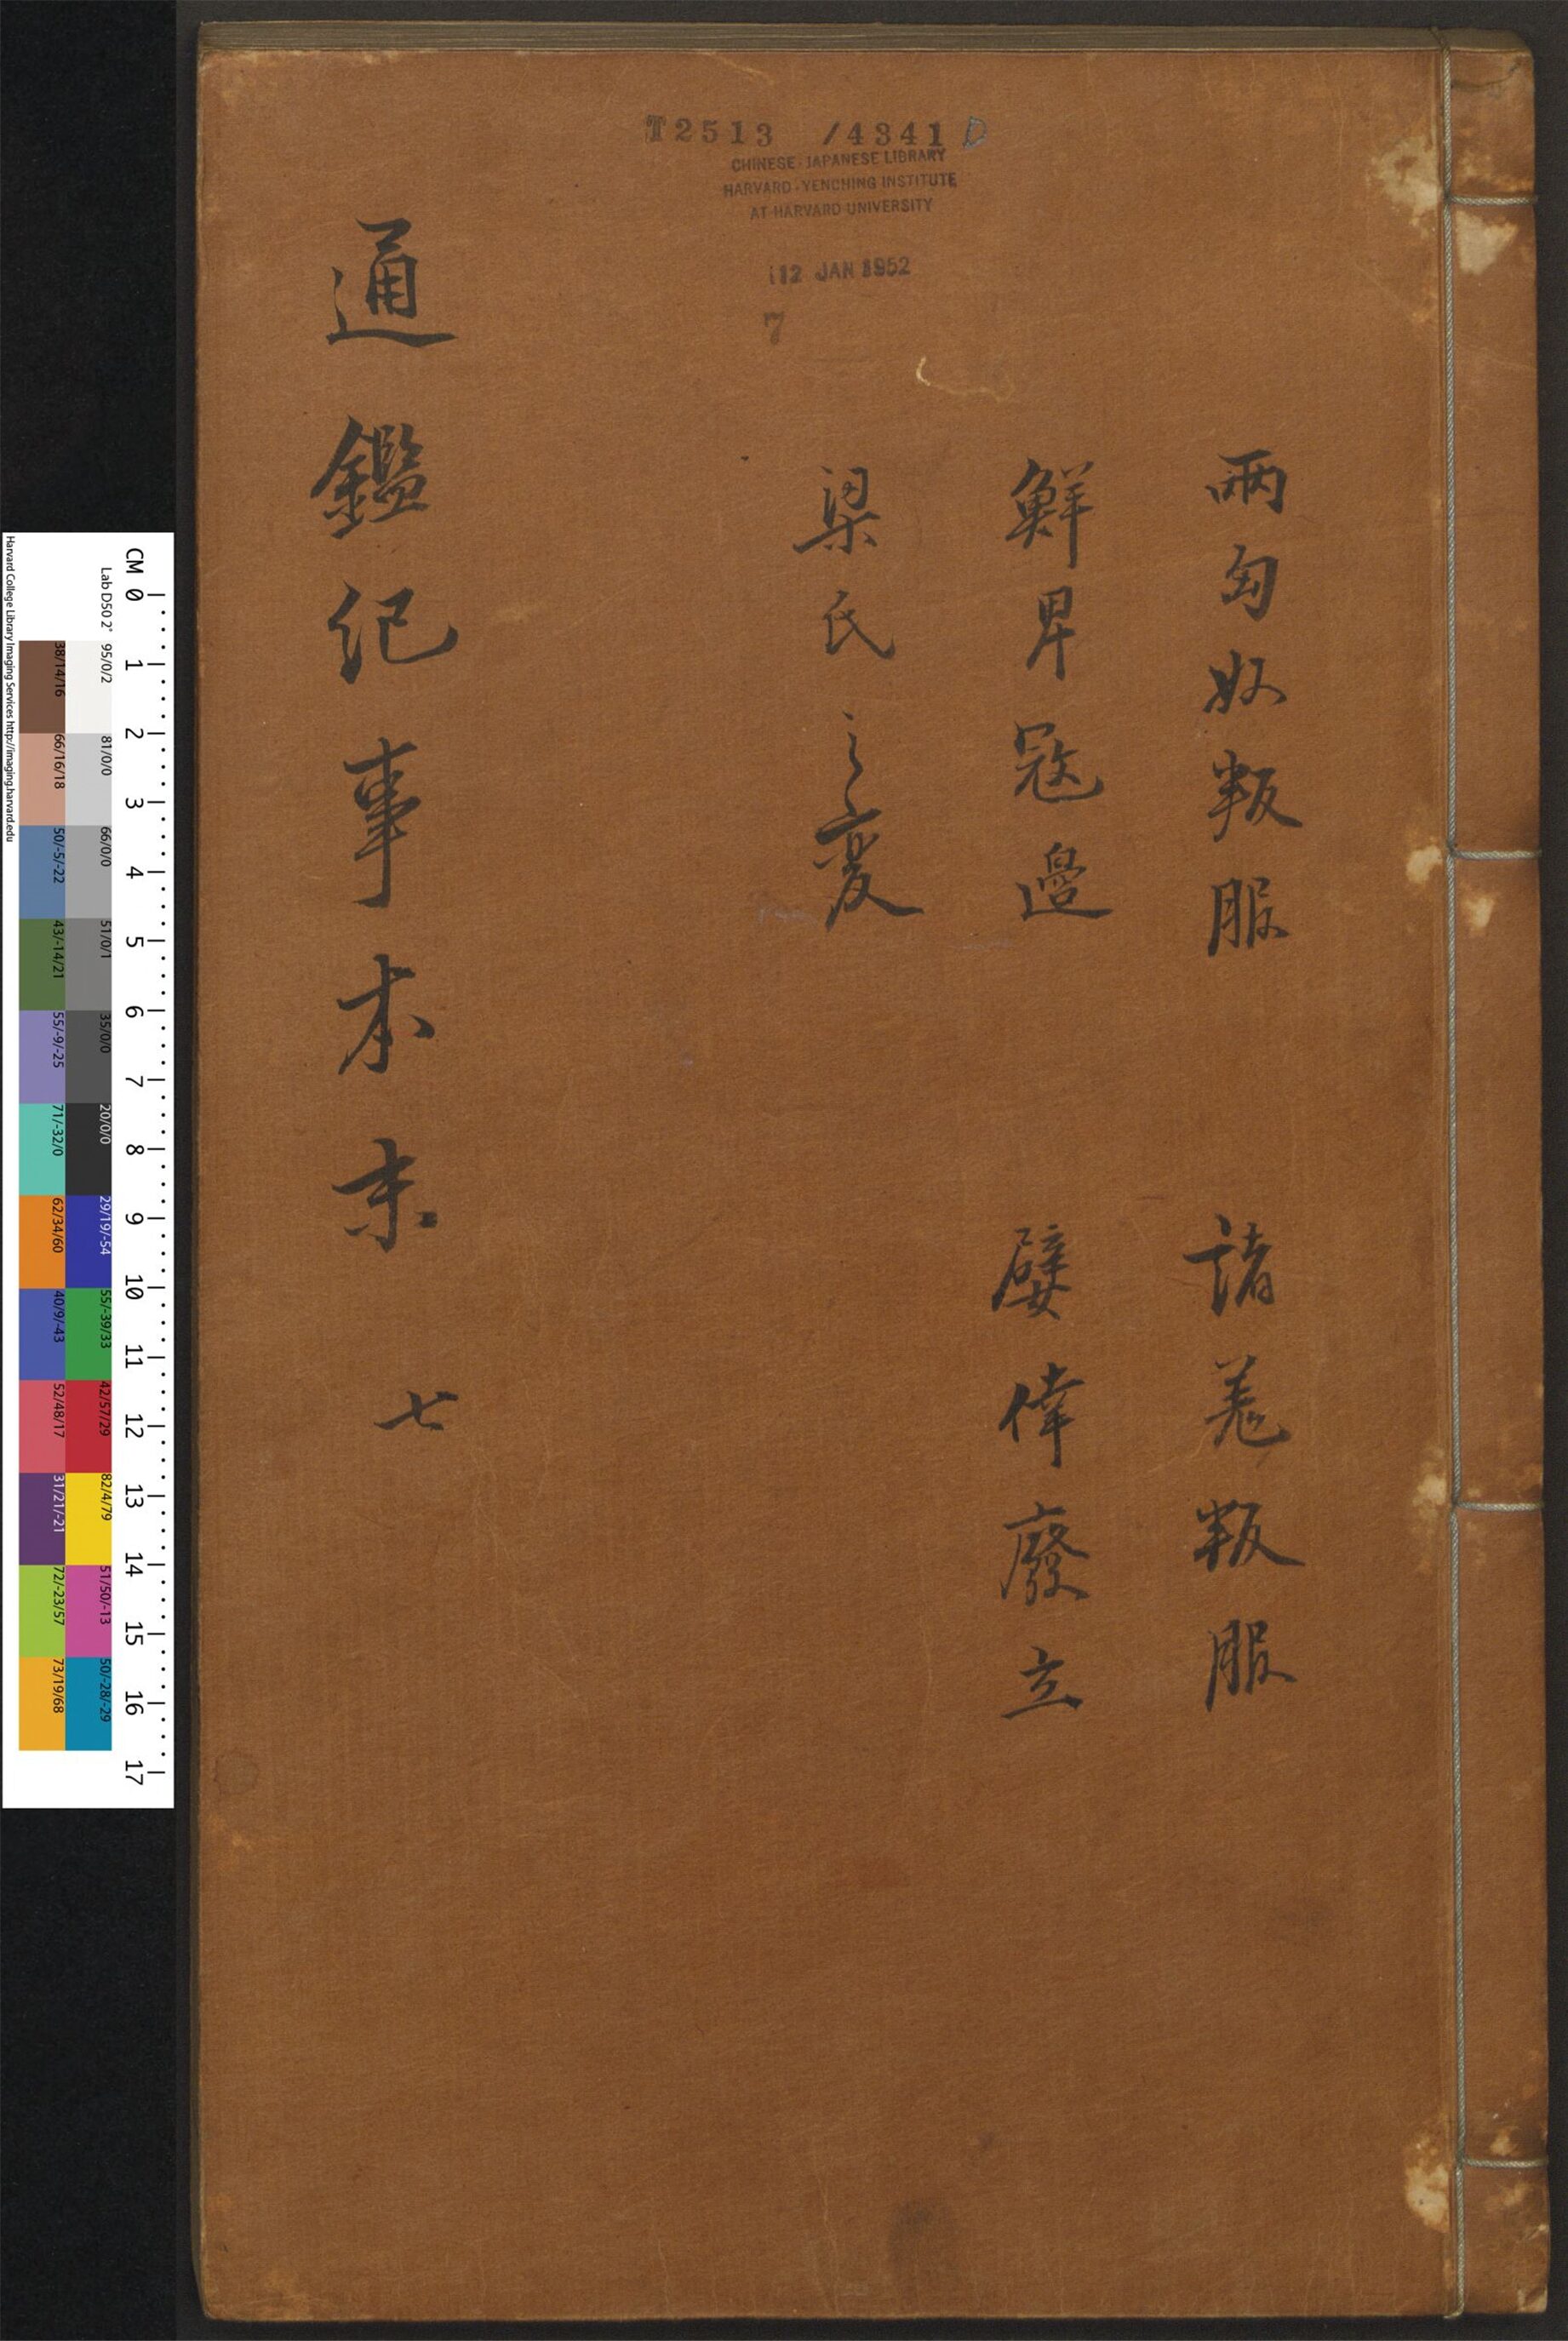 T2513 /4341 D
CHINESE-JAPANESE LIBRARY
HARVARD-YENCHING INSTITUTE
AT HARVARD UNIVERSITY
12 JAN 1952
7
兩匈奴叛服
諸羌叛服
鮮卑寇邊
嬖倖廢立
梁氏之變
通鑑紀事本末 七
CM 0 1 2 3 4 5 6 7 8 9 10 11 12 13 14 15 16 17
Lab D50 2° 95/0/2 81/0/0 66/0/0 51/0/1 35/0/0 20/0/0 29/19/-54 55/-39/33 42/57/29 82/4/79 51/50/-13 50/-28/-29
38/14/16 66/16/18 50/-5/-22 43/-14/21 55/-9/-25 71/-32/0 62/34/60 40/9/-43 52/48/17 31/21/-21 72/-23/57 73/19/68
Harvard College Library Imaging Services http://imaging.harvard.edu